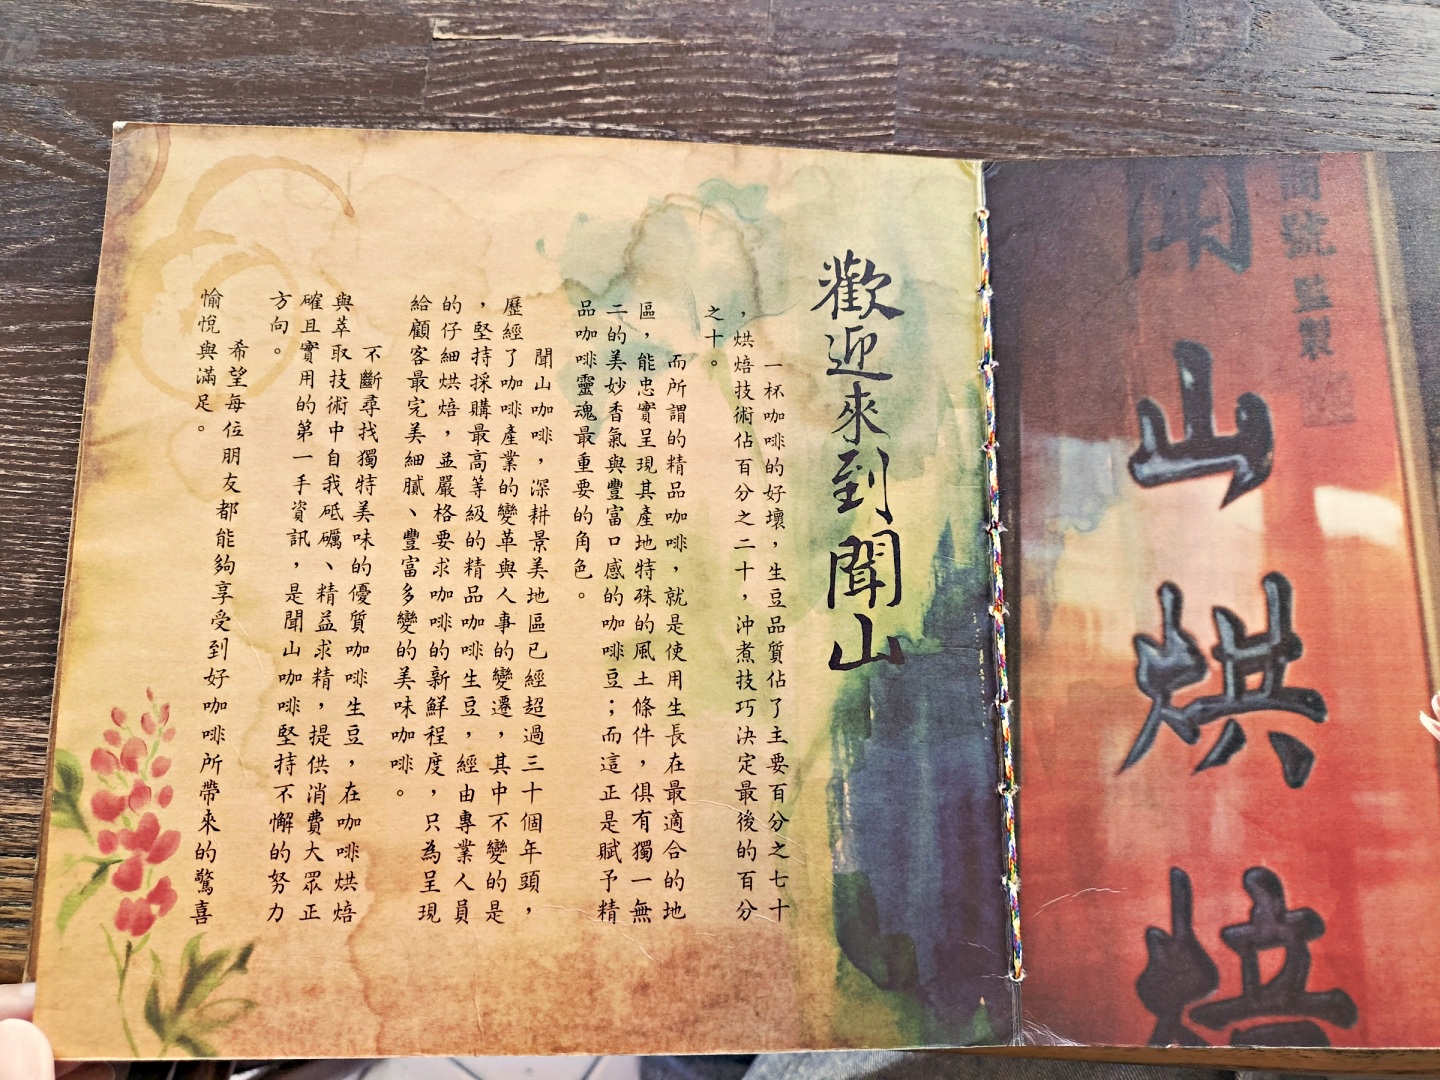 號監製
聞山烘焙
歡迎來到聞山
一杯咖啡的好壞，生豆品質佔了主要百分之七十
，烘焙技術佔百分之二十，沖煮技巧決定最後的百分
之十。
而所謂的精品咖啡，就是使用生長在最適合的地
區，能忠實呈現其產地特殊的風土條件，俱有獨一無
二的美妙香氣與豐富口感的咖啡豆；而這正是賦予精
品咖啡靈魂最重要的角色。
聞山咖啡，深耕景美地區已經超過三十個年頭，
歷經了咖啡產業的變革與人事的變遷，其中不變的是
，堅持採購最高等級的精品咖啡生豆，經由專業人員
的仔細烘焙，並嚴格要求咖啡的新鮮程度，只為呈現
給顧客最完美細膩、豐富多變的美味咖啡。
不斷尋找獨特美味的優質咖啡生豆，在咖啡烘焙
與萃取技術中自我砥礪、精益求精，提供消費大眾正
確且實用的第一手資訊，是聞山咖啡堅持不懈的努力
方向。
希望每位朋友都能夠享受到好咖啡所帶來的驚喜
愉悅與滿足。